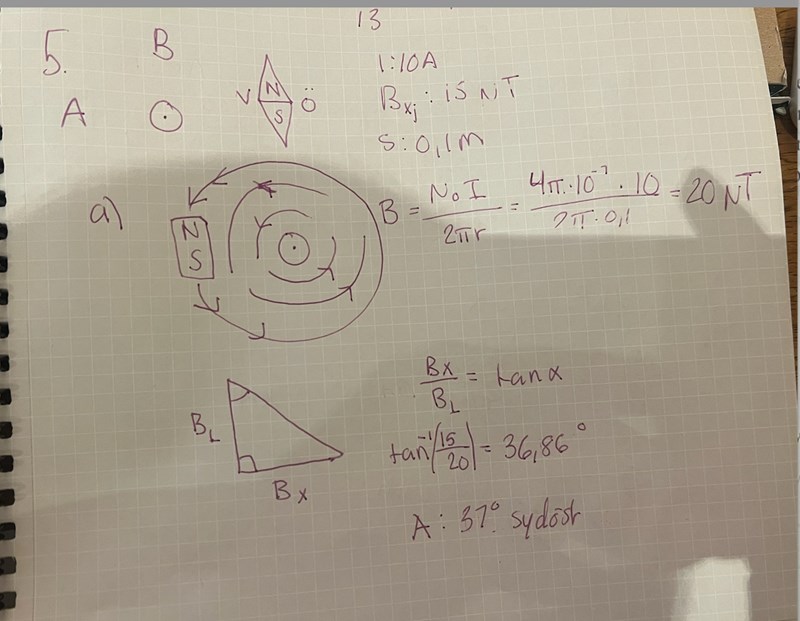 13
5. B
A
V N Ö
S
I:10A
Bxj: 15 NT
S:0,1M
a)
N
S
B = N₀I / 2πr = 4π·10⁻⁷·10 / 2π·0,1 = 20 NT
BL
Bx
Bx / BL = tanα
tan⁻¹(15/20) = 36,86°
A: 37° sydöst